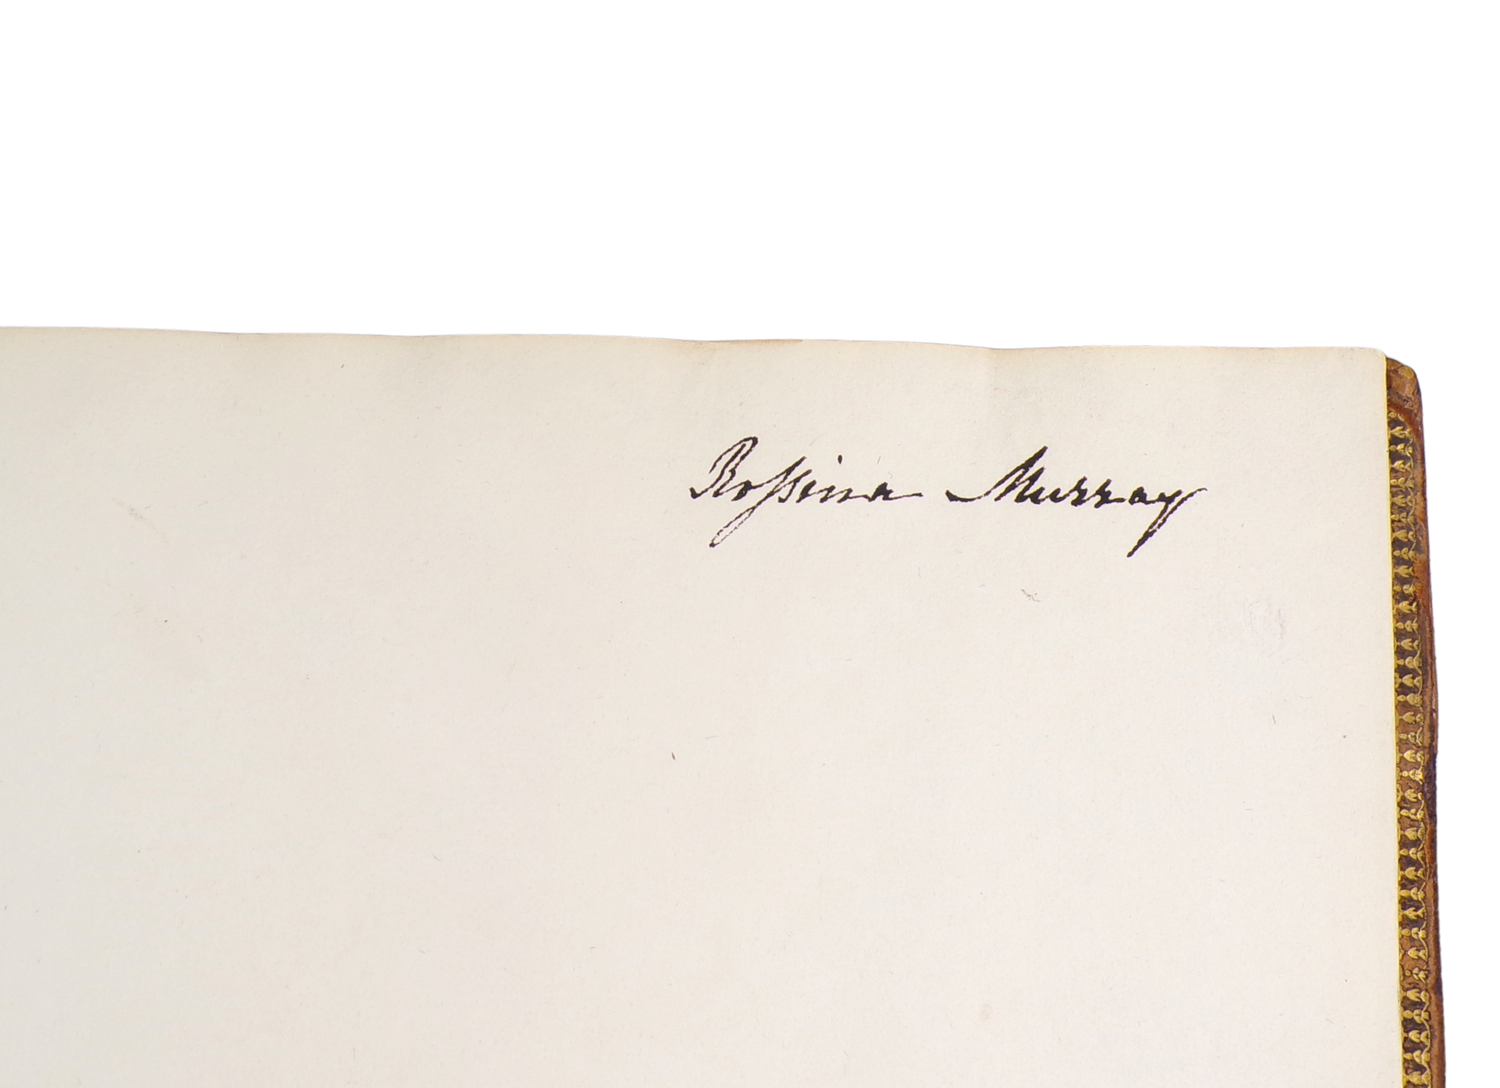 Roſsina Murray